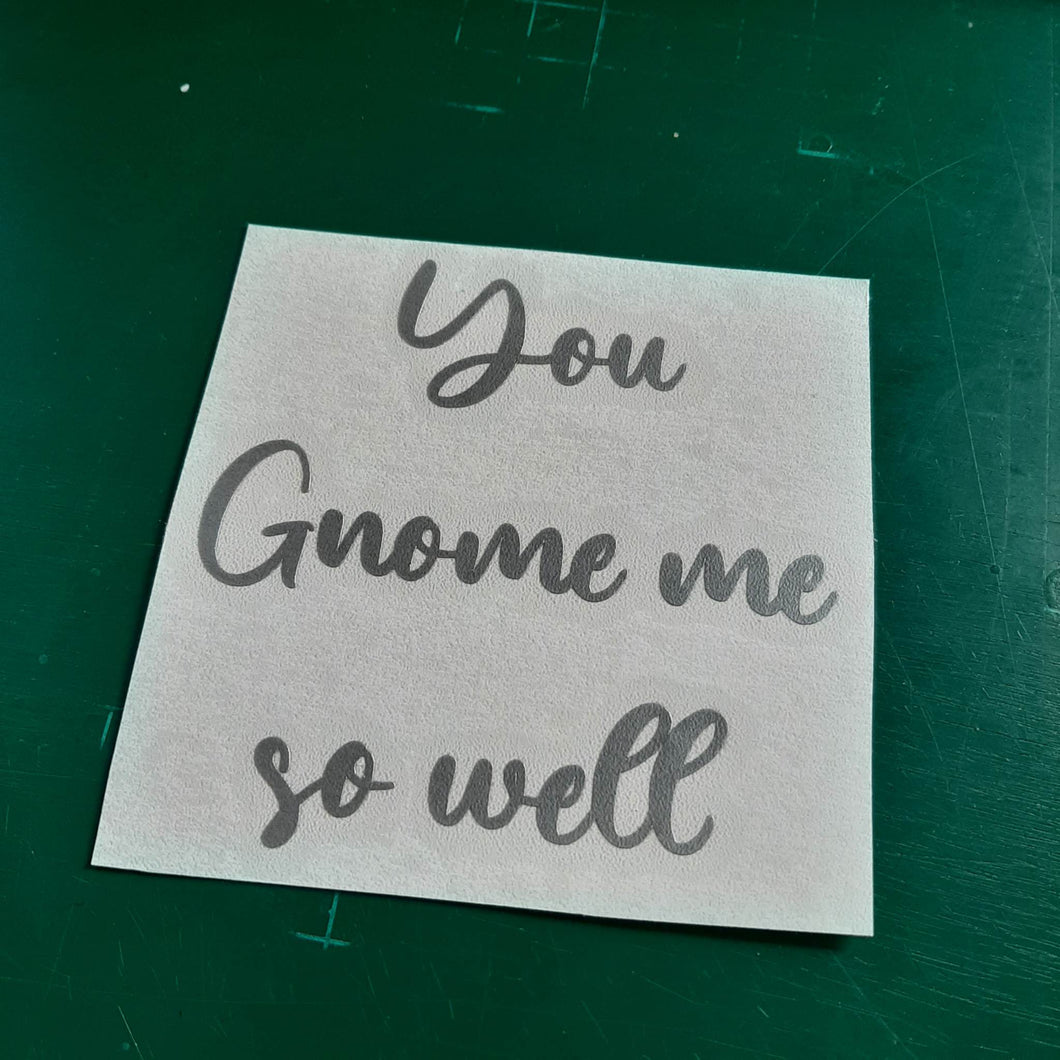 You
Gnome me
so well